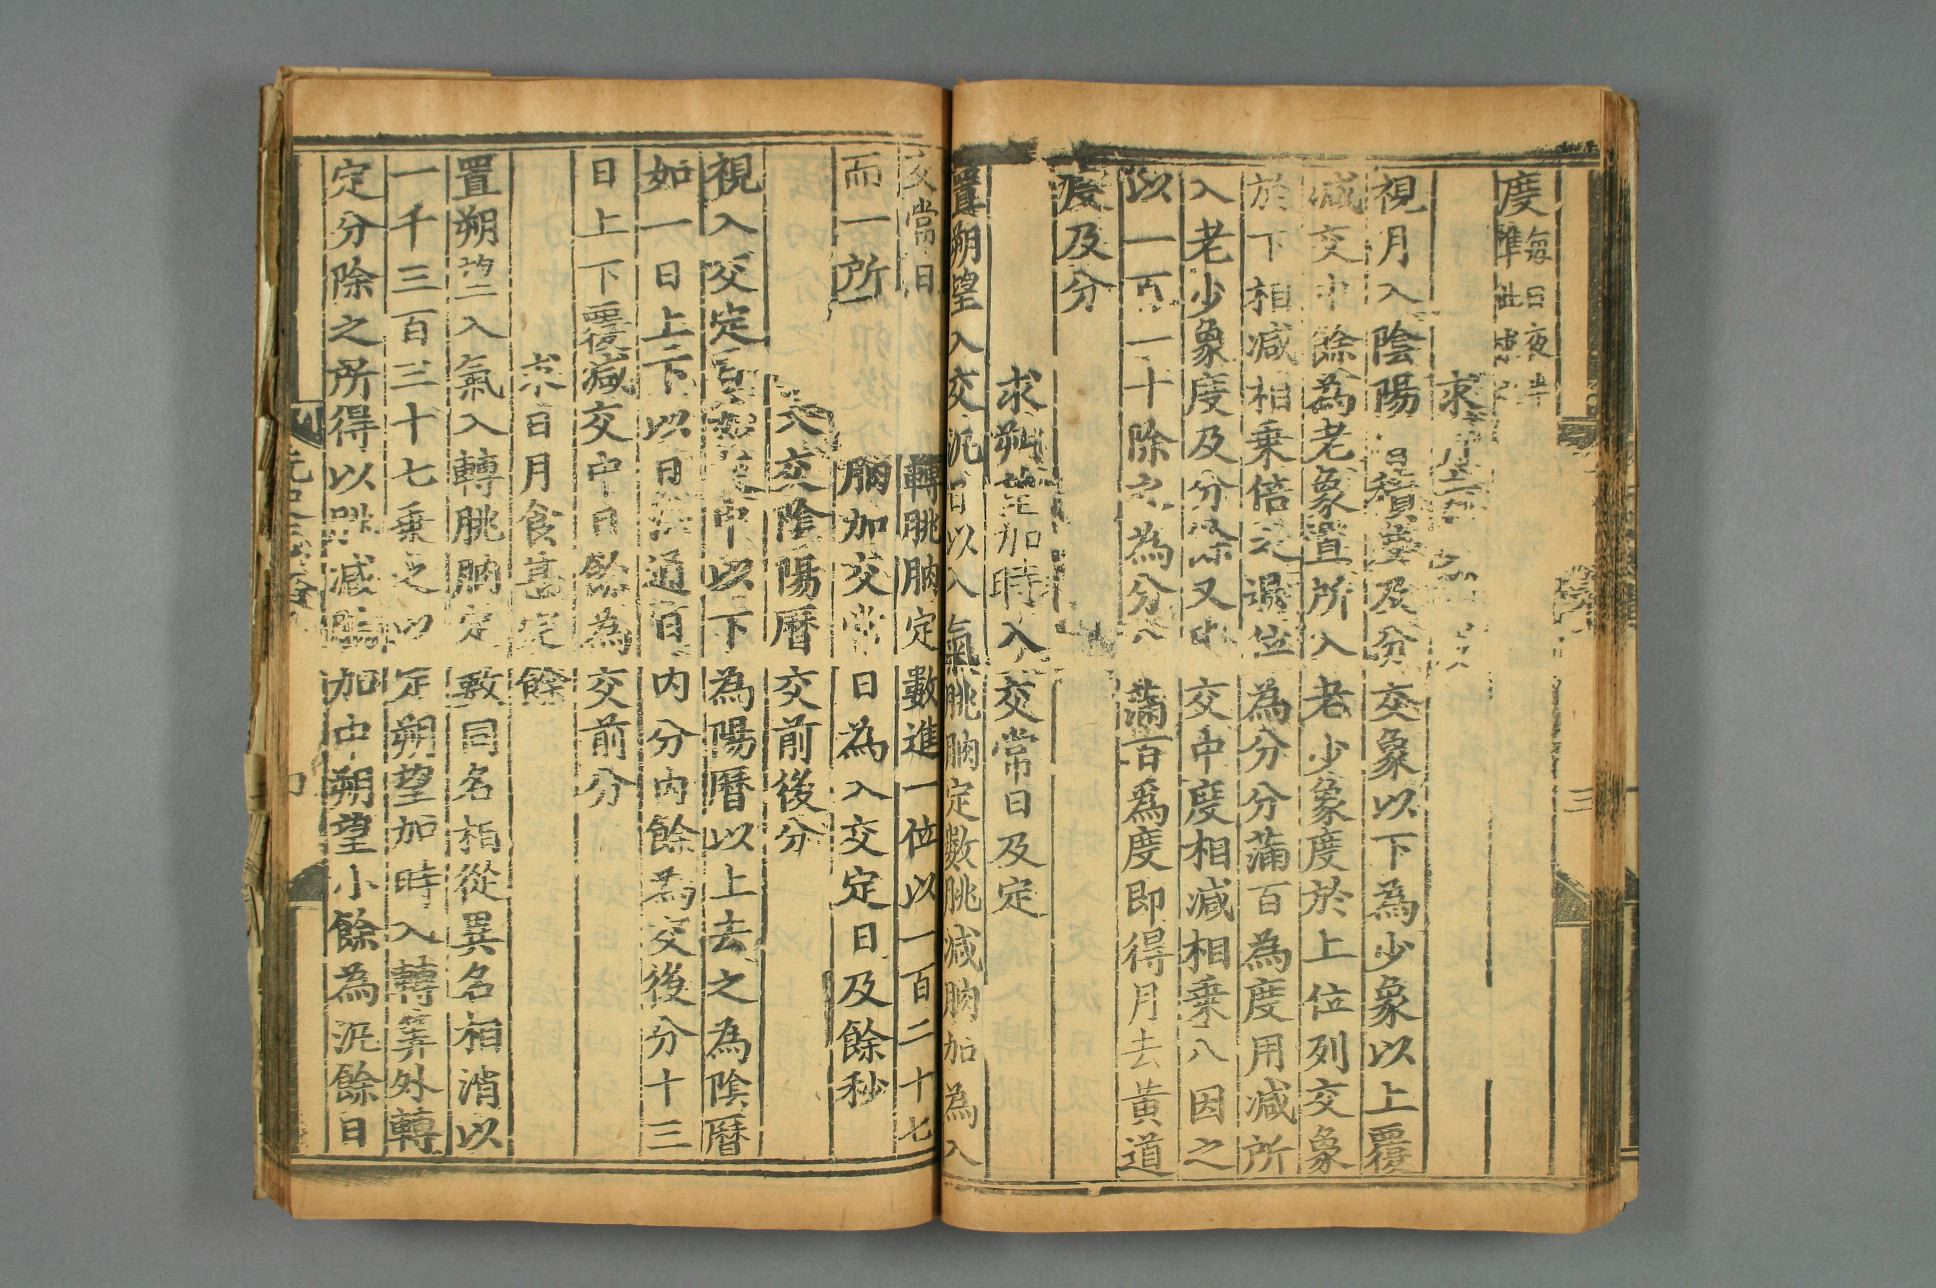 度每日夜半準此求之
求月去黃道度
視月入陰陽曆積度及分交象以下為少象以上覆
減交中餘為老象置所入老少象度於上位列交象
於下相減相乘倍之退位為分分滿百為度用減所
入老少象度及分餘又與交中度相減相乘八因之
以一百一十除之為分分滿百為度即得月去黃道
度及分
求朔望加時入交常日及定日
置朔望入交汎日以入氣朓朒定數朓減朒加為入
交常日
轉朓朒定數進一位以一百二十七
而一所
朒加交常日為入交定日及餘秒
入交陰陽曆交前後分
視入交定日如交中以下為陽曆以上去之為陰曆
如一日上下以日法通日內分內餘為交後分十三
日上下覆減交中日餘為交前分
求日月食甚定餘
置朔望入氣入轉朓朒定數同名相從異名相消以
一千三百三十七乘之以定朔望加時入轉筭外轉
定分除之所得以朓減朒加中朔望小餘為汎餘日